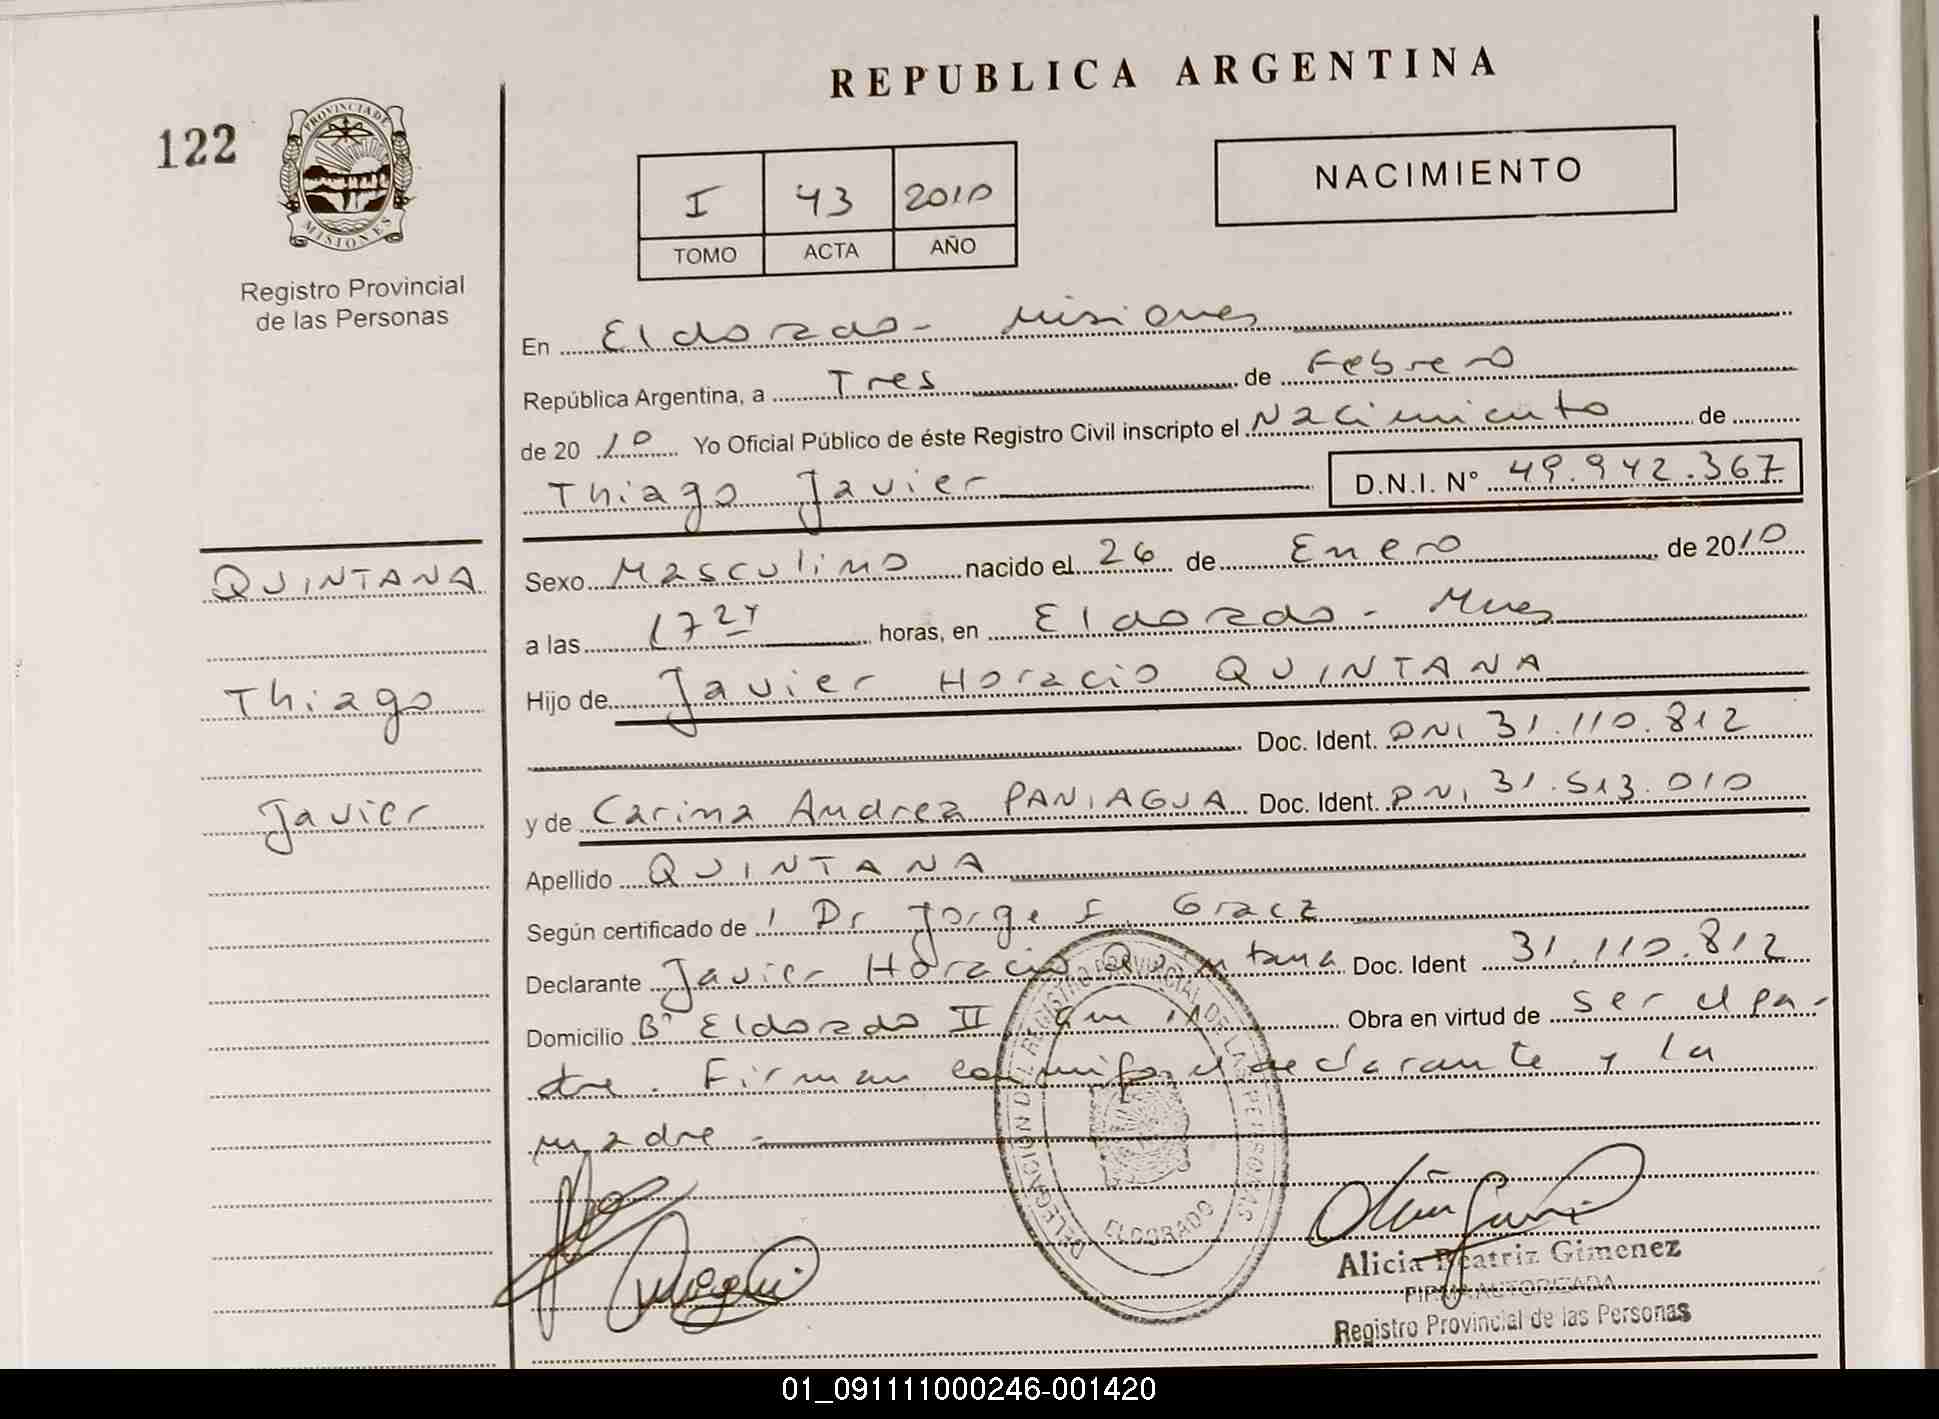 REPUBLICA ARGENTINA
122
PROVINCIA DE
MISIONES
Registro Provincial
de las Personas
I 43 2010
TOMO ACTA AÑO
NACIMIENTO
En Eldorado - Misiones
República Argentina, a Tres de Febrero
de 2010 Yo Oficial Público de éste Registro Civil inscripto el Nacimiento de
Thiago Javier D.N.I. N° 49.942.367
QUINTANA
Thiago
Javier
Sexo Masculino nacido el 26 de Enero de 2010
a las 17 24 horas, en Eldorado - Mnes
Hijo de Javier Horacio QUINTANA
Doc. Ident. DNI 31.110.812
y de Carina Andrea PANIAGUA Doc. Ident. DNI 31.513.010
Apellido QUINTANA
Según certificado de Dr Jorge Gracz
Declarante Javier Horacio Quintana Doc. Ident 31.110.812
Domicilio B° Eldorado II Km 11 Obra en virtud de ser el pa-
dre. Firman conmigo el declarante y la
madre -
DELEGACION DEL REGISTRO PROVINCIAL DE LAS PERSONAS
ELDORADO
Alicia Beatriz Gimenez
FIRMA AUTORIZADA
Registro Provincial de las Personas
01_091111000246-001420